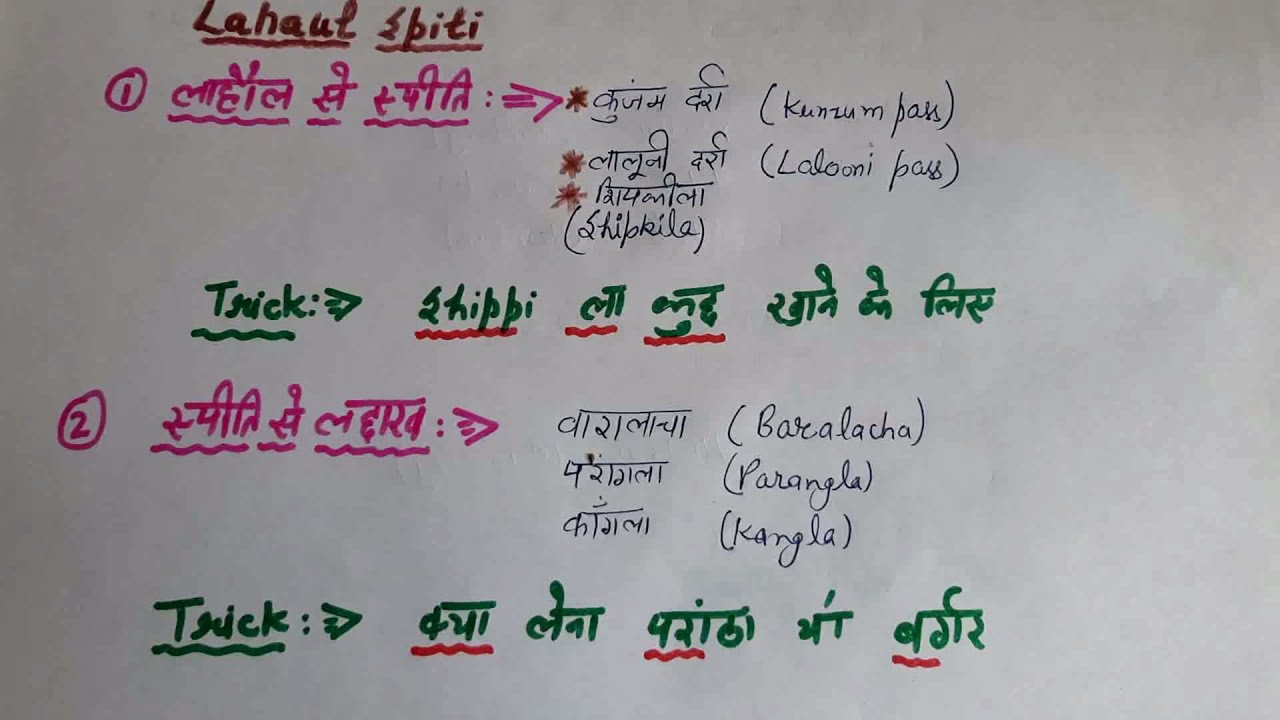 Lahaul Spiti
① लाहौल से स्पीति :⇒ * कुंजम दर्रा (Kunzum pass)
* लालूनी दर्रा (Lalooni pass)
* शिपकीला
(Shipkila)
Trick :⇒ Shippi ला कुछ खाने के लिए
② स्पीति से लद्दाख :⇒ वारालाचा (Baralacha)
परांगला (Parangla)
काँगला (Kangla)
Trick :⇒ क्या लेना परांठा यां बर्गर